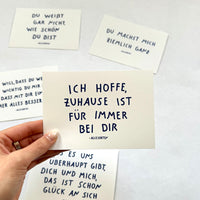 DU WEIßT
GAR NICHT
WIE SCHÖN
DU BIST
DU MACHST MICH
ZIEMLICH GANZ
ICH HOFFE,
ZUHAUSE IST
FÜR IMMER
BEI DIR
WEIL DASS DU WE
WICHTIG DU MIR
DASS MIT DIR EINF
ER ALLES BESSER
ES UNS
ÜBERHAUPT GIBT,
DICH UND MICH,
DAS IST SCHON
GLÜCK AN SICH